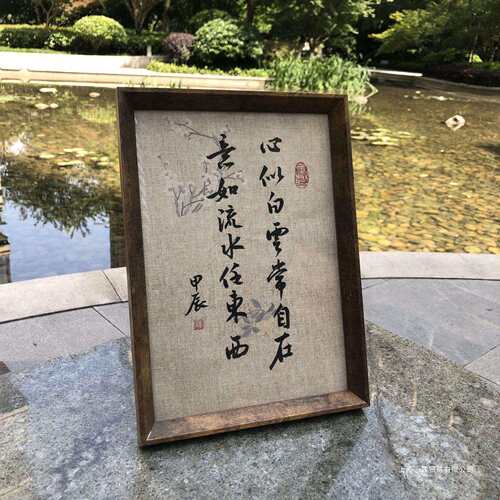 心似白雲常自在
意如流水任東西
甲辰